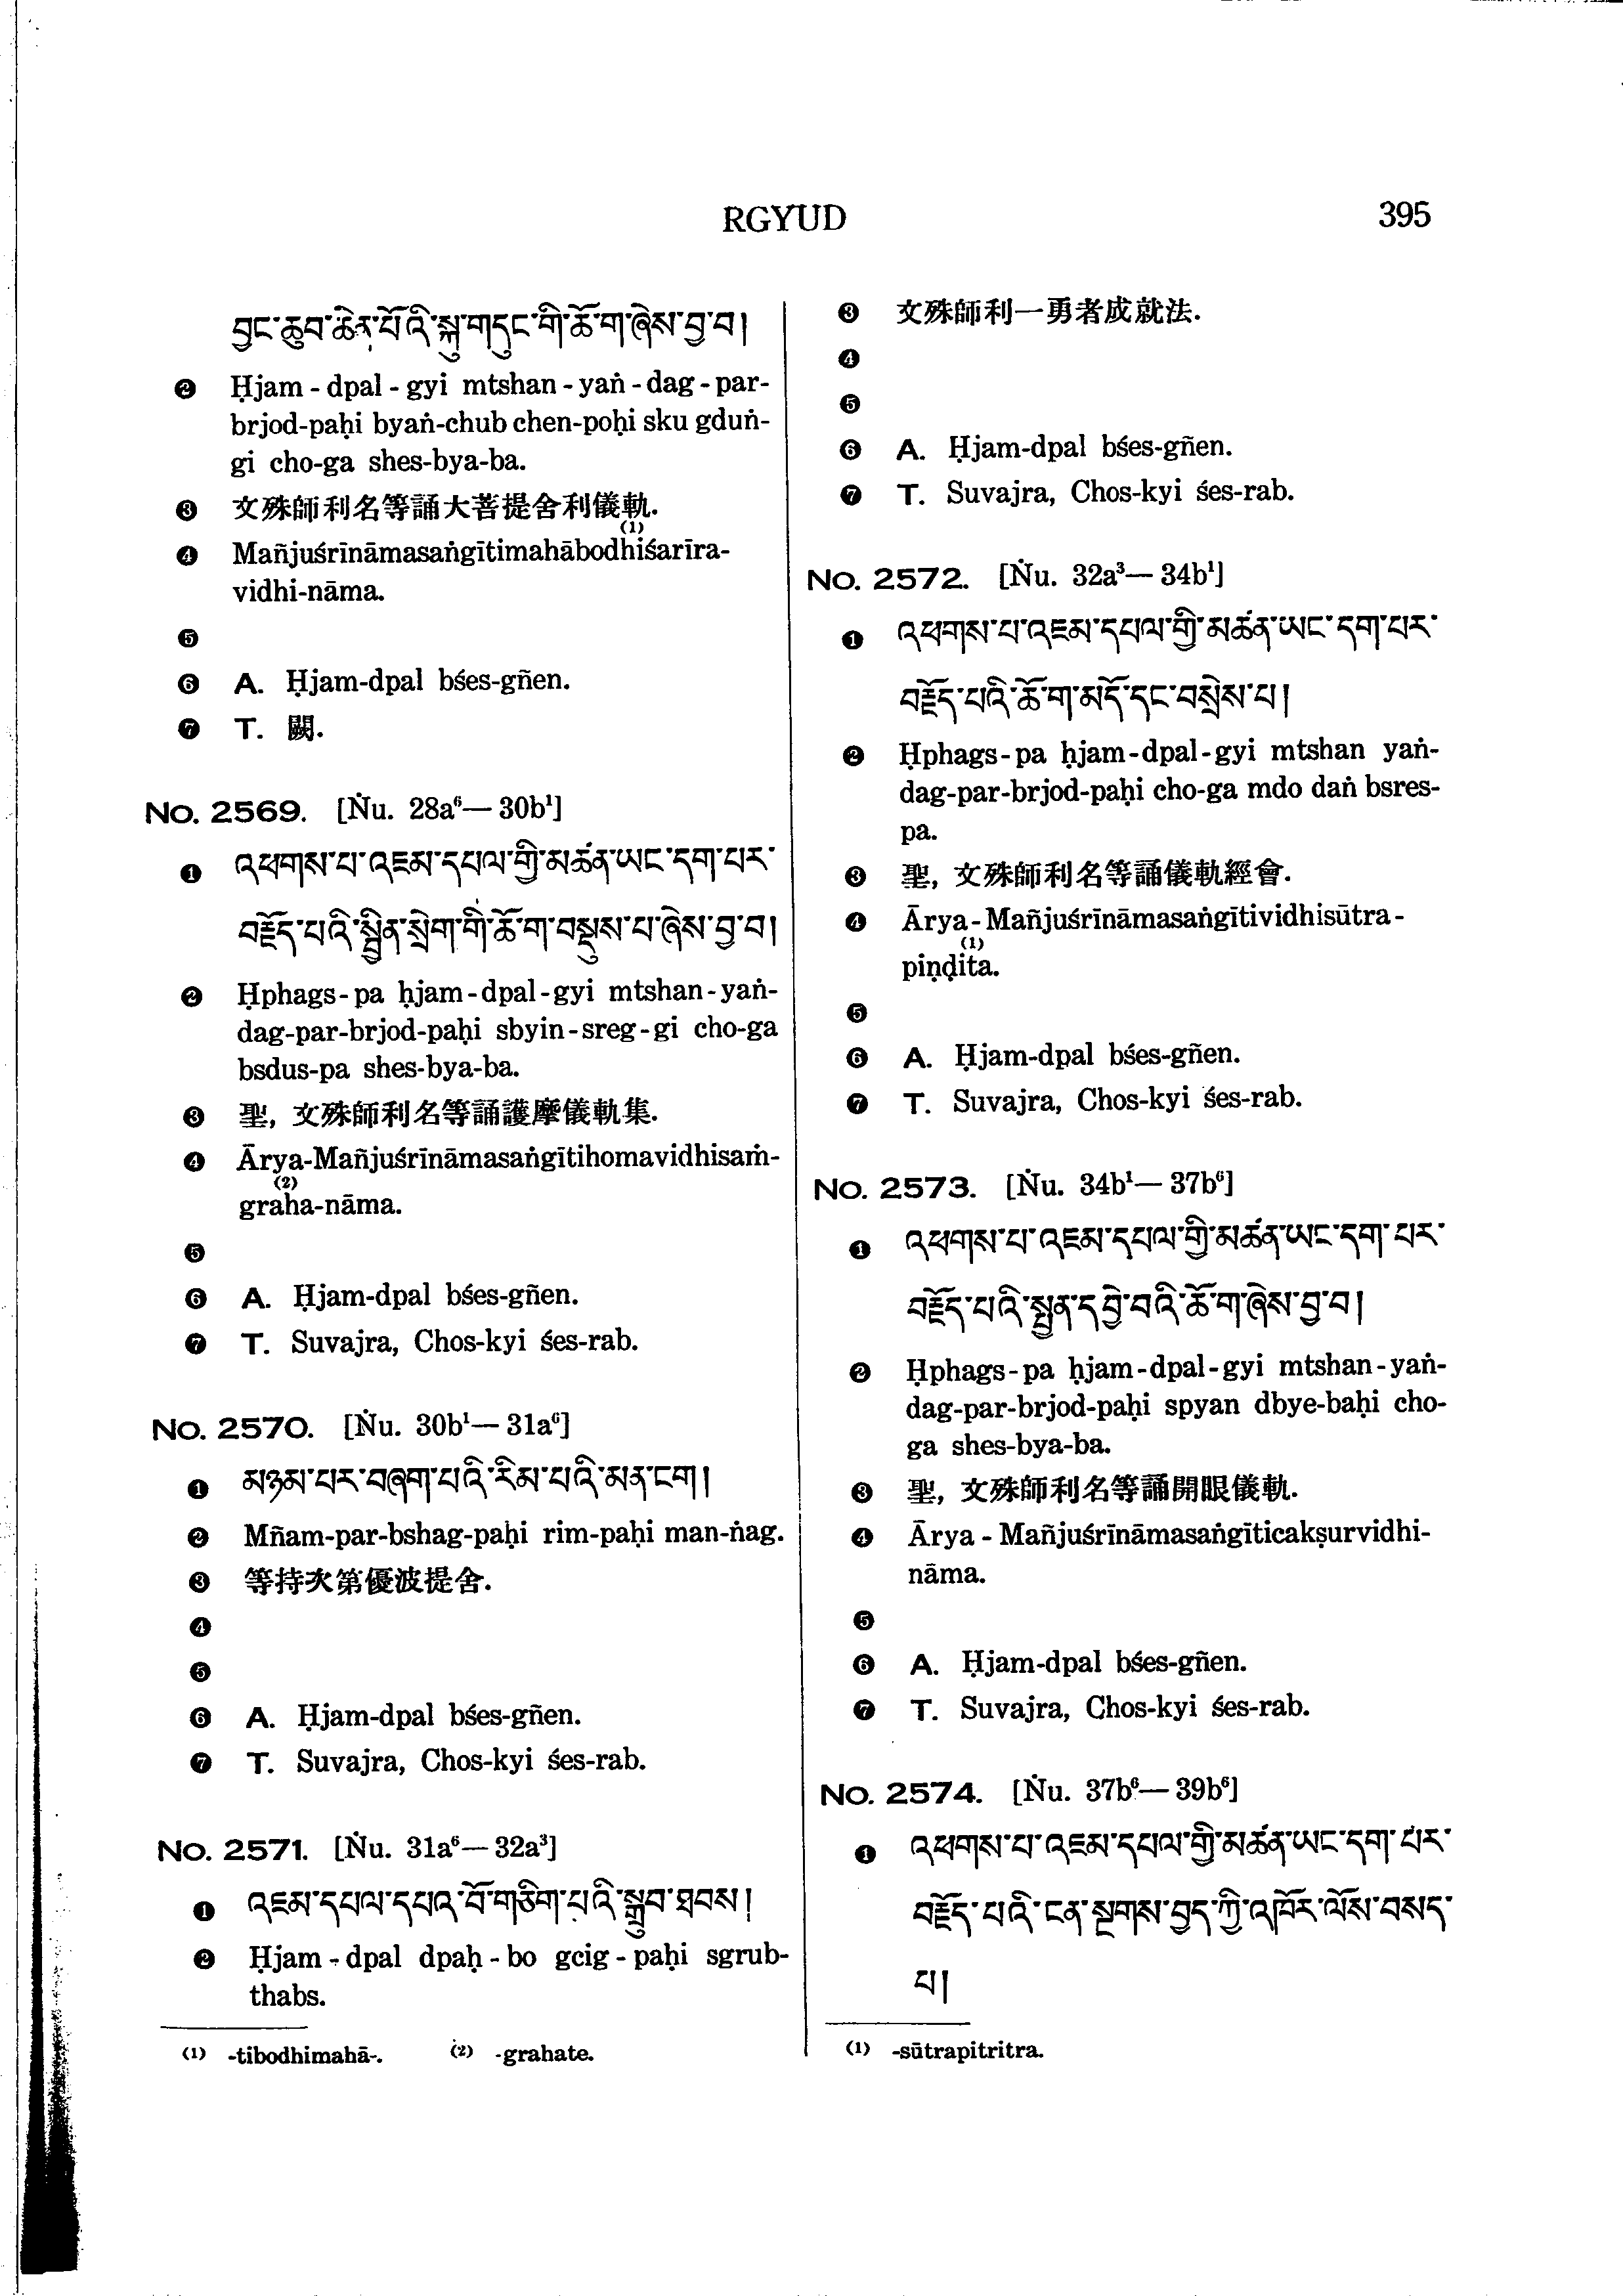 RGYUD
395
བྱང་ཆུབ་ཆེན་པོའི་སྐུ་གདུང་གི་ཆོ་ག་ཞེས་བྱ་བ།
❷ Ḥjam-dpal-gyi mtshan-yaṅ-dag-par-
brjod-paḥi byaṅ-chub chen-poḥi sku gduṅ-
gi cho-ga shes-bya-ba.
❸ 文殊師利名等誦大菩提舍利儀軌.
❹ Mañjuśrīnāmasaṅgītimahābodhi⁽¹⁾śarīra-
vidhi-nāma.
❺
❻ A. Ḥjam-dpal bśes-gñen.
❼ T. 闕.
No. 2569. [Ṅu. 28a⁶—30b¹]
❶ འཕགས་པ་འཇམ་དཔལ་གྱི་མཚན་ཡང་དག་པར་
བརྗོད་པའི་སྦྱིན་སྲེག་གི་ཆོ་ག་བསྡུས་པ་ཞེས་བྱ་བ།
❷ Ḥphags-pa ḥjam-dpal-gyi mtshan-yaṅ-
dag-par-brjod-paḥi sbyin-sreg-gi cho-ga
bsdus-pa shes-bya-ba.
❸ 聖, 文殊師利名等誦護摩儀軌集.
❹ Ārya-Mañjuśrīnāmasaṅgītihomavidhisaṁ-
graha⁽²⁾-nāma.
❺
❻ A. Ḥjam-dpal bśes-gñen.
❼ T. Suvajra, Chos-kyi śes-rab.
No. 2570. [Ṅu. 30b¹—31a⁶]
❶ མཉམ་པར་བཞག་པའི་རིམ་པའི་མན་ངག།
❷ Mñam-par-bshag-paḥi rim-paḥi man-ṅag.
❸ 等持次第優波提舍.
❹
❺
❻ A. Ḥjam-dpal bśes-gñen.
❼ T. Suvajra, Chos-kyi śes-rab.
No. 2571. [Ṅu. 31a⁶—32a³]
❶ འཇམ་དཔལ་དཔའ་བོ་གཅིག་པའི་སྒྲུབ་ཐབས།
❷ Ḥjam-dpal dpaḥ-bo gcig-paḥi sgrub-
thabs.
(1) -tibodhimahā-. (2) -grahate.
❸ 文殊師利一勇者成就法.
❹
❺
❻ A. Ḥjam-dpal bśes-gñen.
❼ T. Suvajra, Chos-kyi śes-rab.
No. 2572. [Ṅu. 32a³—34b¹]
❶ འཕགས་པ་འཇམ་དཔལ་གྱི་མཚན་ཡང་དག་པར་
བརྗོད་པའི་ཆོ་ག་མདོ་དང་བསྲེས་པ།
❷ Ḥphags-pa ḥjam-dpal-gyi mtshan yaṅ-
dag-par-brjod-paḥi cho-ga mdo daṅ bsres-
pa.
❸ 聖, 文殊師利名等誦儀軌經會.
❹ Ārya-Mañjuśrīnāmasaṅgītividhisūtra-
piṇḍita⁽¹⁾.
❺
❻ A. Ḥjam-dpal bśes-gñen.
❼ T. Suvajra, Chos-kyi śes-rab.
No. 2573. [Ṅu. 34b¹—37b⁶]
❶ འཕགས་པ་འཇམ་དཔལ་གྱི་མཚན་ཡང་དག་པར་
བརྗོད་པའི་སྤྱན་དབྱེ་བའི་ཆོ་ག་ཞེས་བྱ་བ།
❷ Ḥphags-pa ḥjam-dpal-gyi mtshan-yaṅ-
dag-par-brjod-paḥi spyan dbye-baḥi cho-
ga shes-bya-ba.
❸ 聖, 文殊師利名等誦開眼儀軌.
❹ Ārya-Mañjuśrīnāmasaṅgīticakṣurvidhi-
nāma.
❺
❻ A. Ḥjam-dpal bśes-gñen.
❼ T. Suvajra, Chos-kyi śes-rab.
No. 2574. [Ṅu. 37b⁶—39b⁶]
❶ འཕགས་པ་འཇམ་དཔལ་གྱི་མཚན་ཡང་དག་པར་
བརྗོད་པའི་ངན་སྔགས་བྱད་ཀྱི་འཁོར་ལོས་བསད་
པ།
(1) -sūtrapitritra.